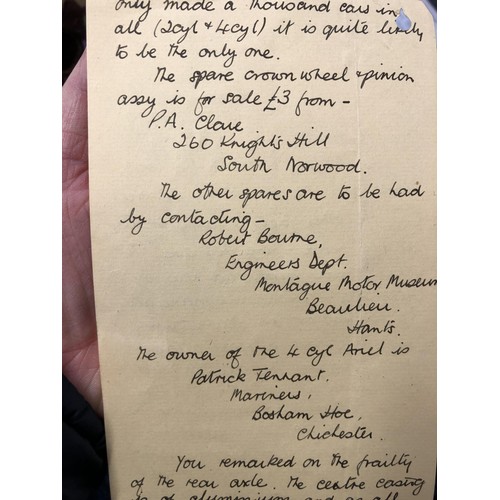 only made a thousand cars in
all (2cyl + 4cyl) it is quite likely
to be the only one.
The spare crown wheel & pinion
assy is for sale £3 from -
P.A. Clare
260 Knights Hill
South Norwood.
The other spares are to be had
by contacting -
Robert Bourne,
Engineers Dept.
Montague Motor Museum
Beaulieu.
Hants.
The owner of the 4 cyl Ariel is
Patrick Tennant.
Mariners,
Bosham Hoe,
Chichester.
You remarked on the frailty
of the rear axle. The centre casing
is of aluminium and as all